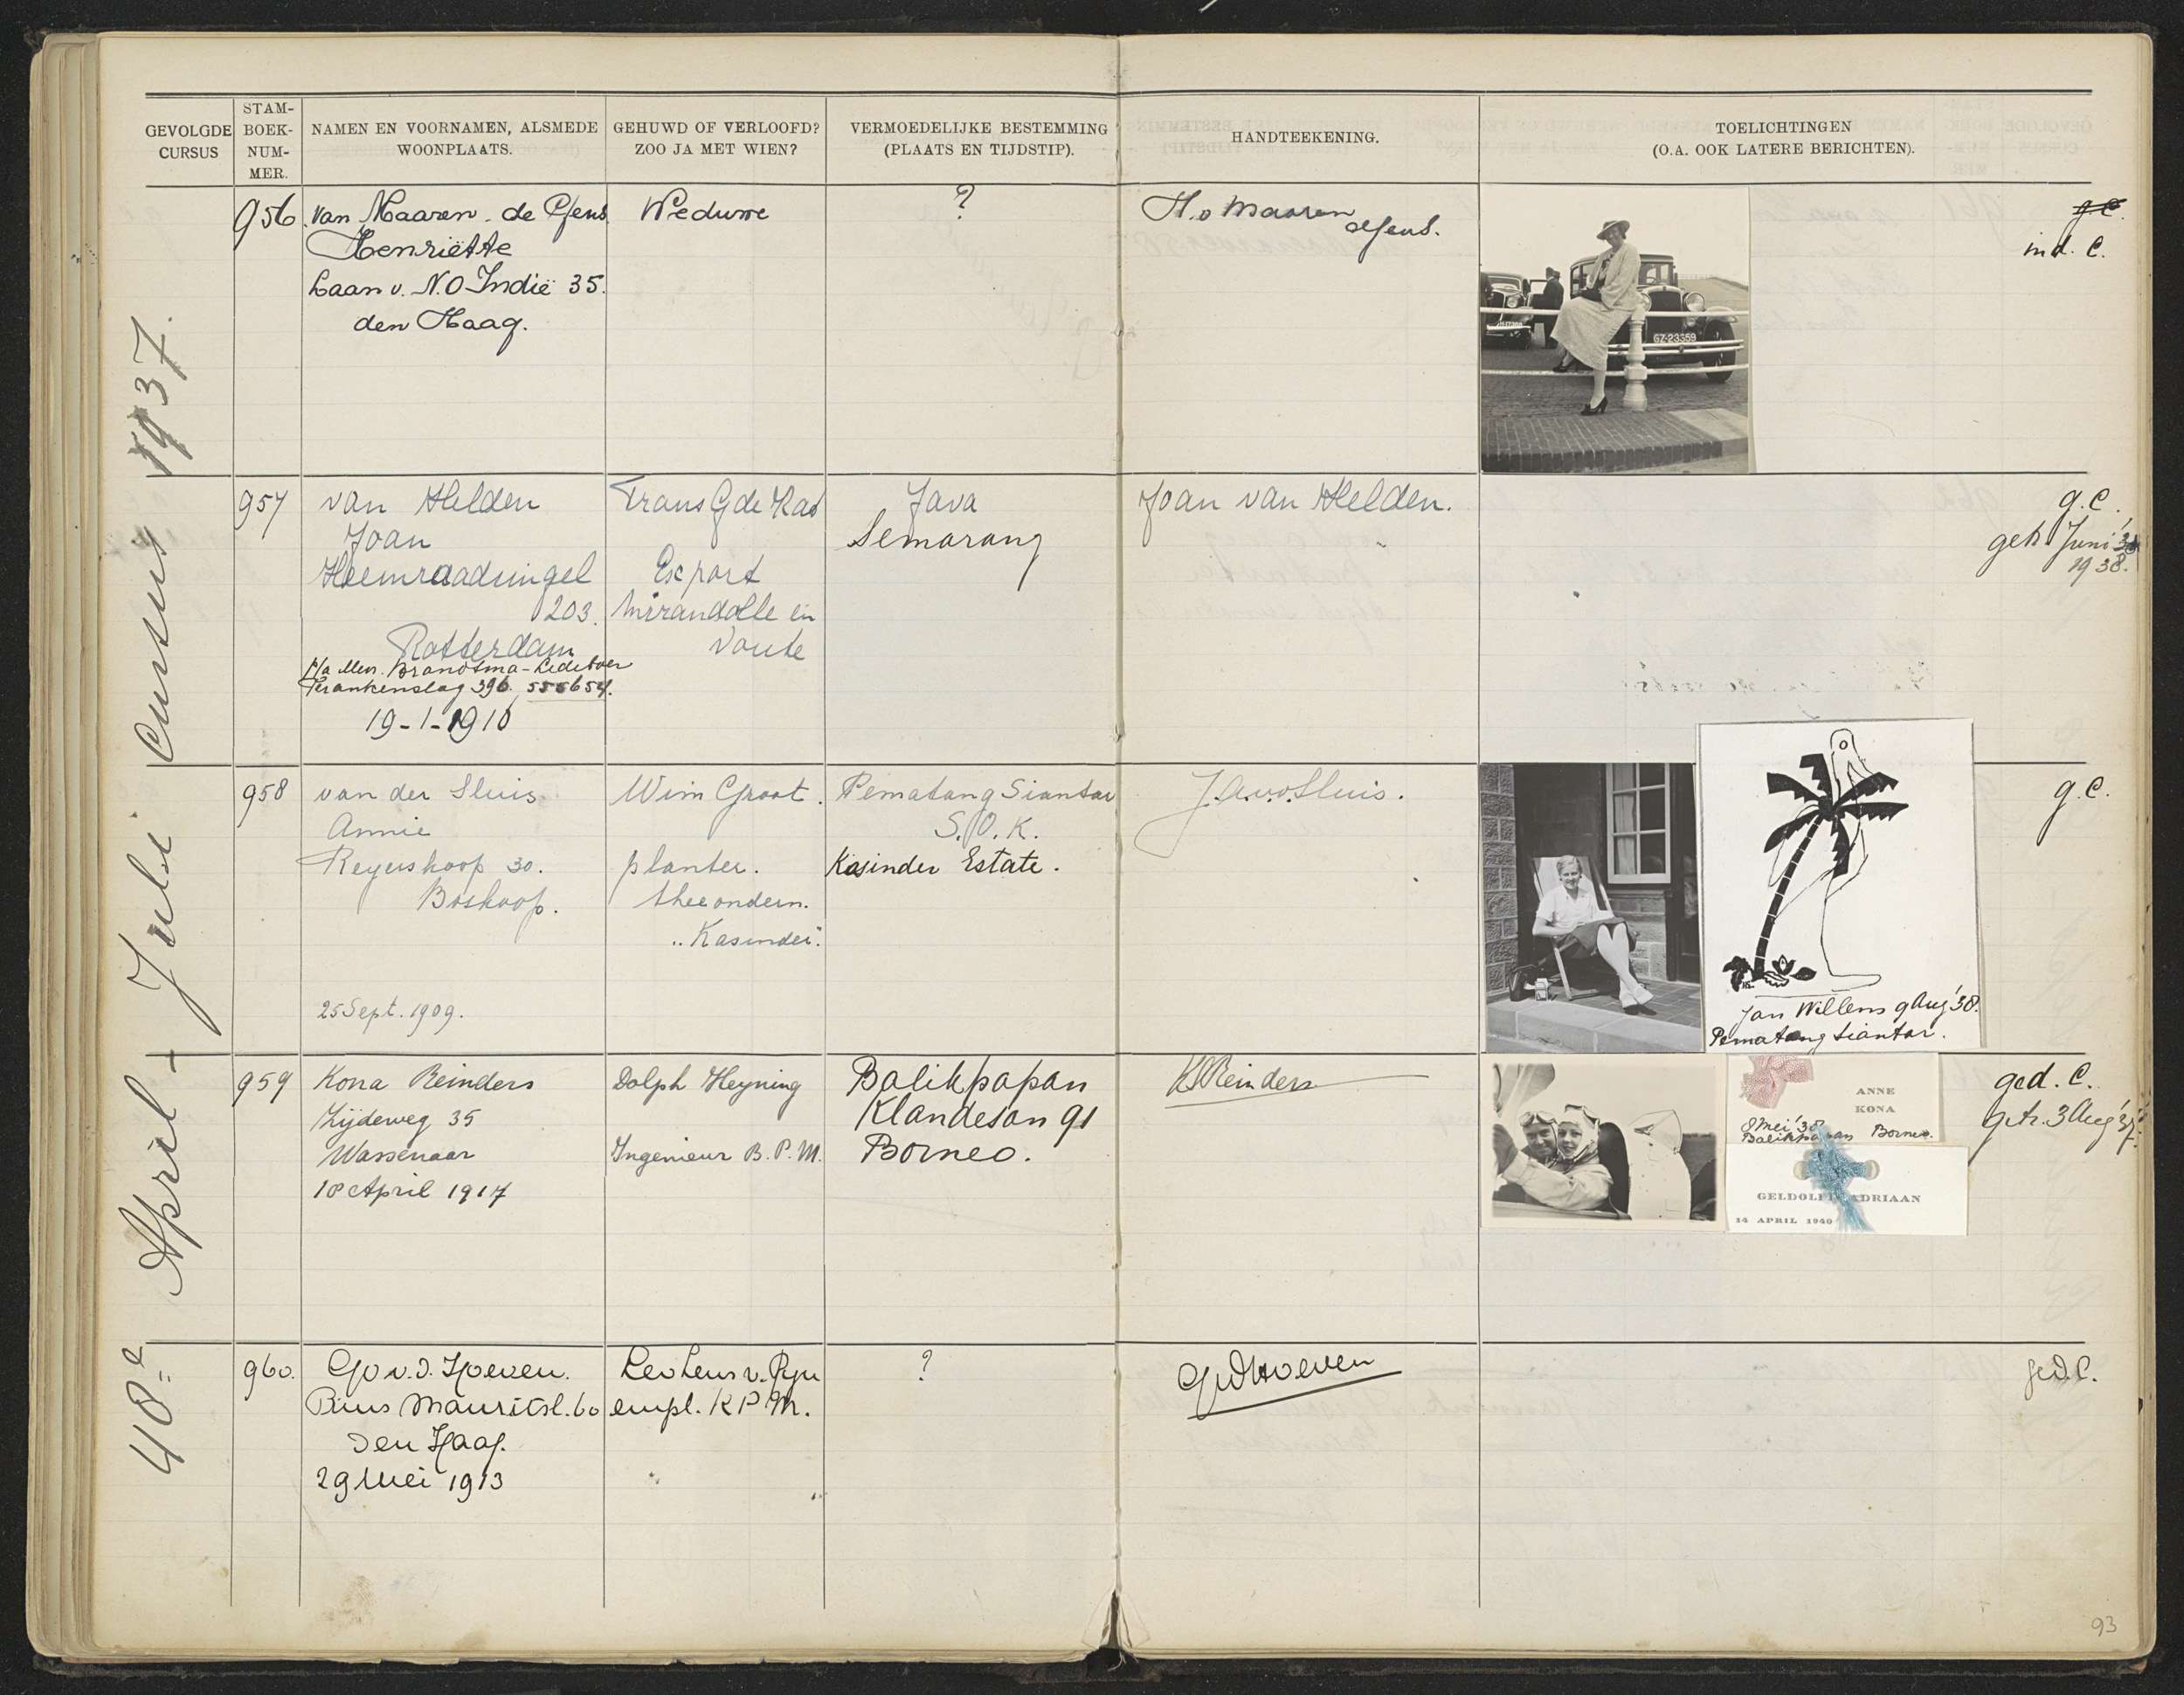 GEVOLGDE CURSUS
STAM-
BOEK-
NUM-
MER.
NAMEN EN VOORNAMEN, ALSMEDE
WOONPLAATS.
GEHUWD OF VERLOOFD?
ZOO JA MET WIEN?
VERMOEDELIJKE BESTEMMING
(PLAATS EN TIJDSTIP).
HANDTEEKENING.
TOELICHTINGEN
(O.A. OOK LATERE BERICHTEN).
48e April - Juli Cursus 1937.
956.
van Maaren - de
Henriëtte
Laan v. N.O-Indië 35.
den Haag.
Weduwe
?
H. v Maaren
GZ-23359
g.C.
ind. C.
957
van Helden
Joan
Heemraadsingel
203.
Rotterdam
p/a Mevr. Brandsma-Ledeboer
Frankenslag 396. 555654.
19-1-1910
Frans G de Kat
Export
Mirandolle en
Voute
Java
Semarang
Joan van Helden.
g.C.
getr. Juni
1938.
958
van der Sluis
Annie
Reyerskoop 30.
Boskoop.
25 Sept. 1909.
Wim Groot.
planter.
theeondern.
"Kasinder".
Pematang Siantar
S.O.K.
Kasinder Estate.
J.A.v.d.Sluis.
Jan Willem 9 Aug '38.
Pematang Siantar.
g.C.
959
Kona Reinders
Zijdeweg 35
Wassenaar
18 April 1917
Dolph Heyning
Ingenieur B.P.M.
Balikpapan
Klandesan 91
Borneo.
K Reinders
ANNE
KONA
8 Mei '38
Balikpapan Borneo.
GELDOLPH ADRIAAN
14 APRIL 1940
ged. C.
getr. 3 Aug '37.
960.
Go v.d. Hoeven.
Prins Mauritsl. 60
Den Haag.
29 Mei 1913
empl. K P M.
?
GvdHoeven
ged C.
93